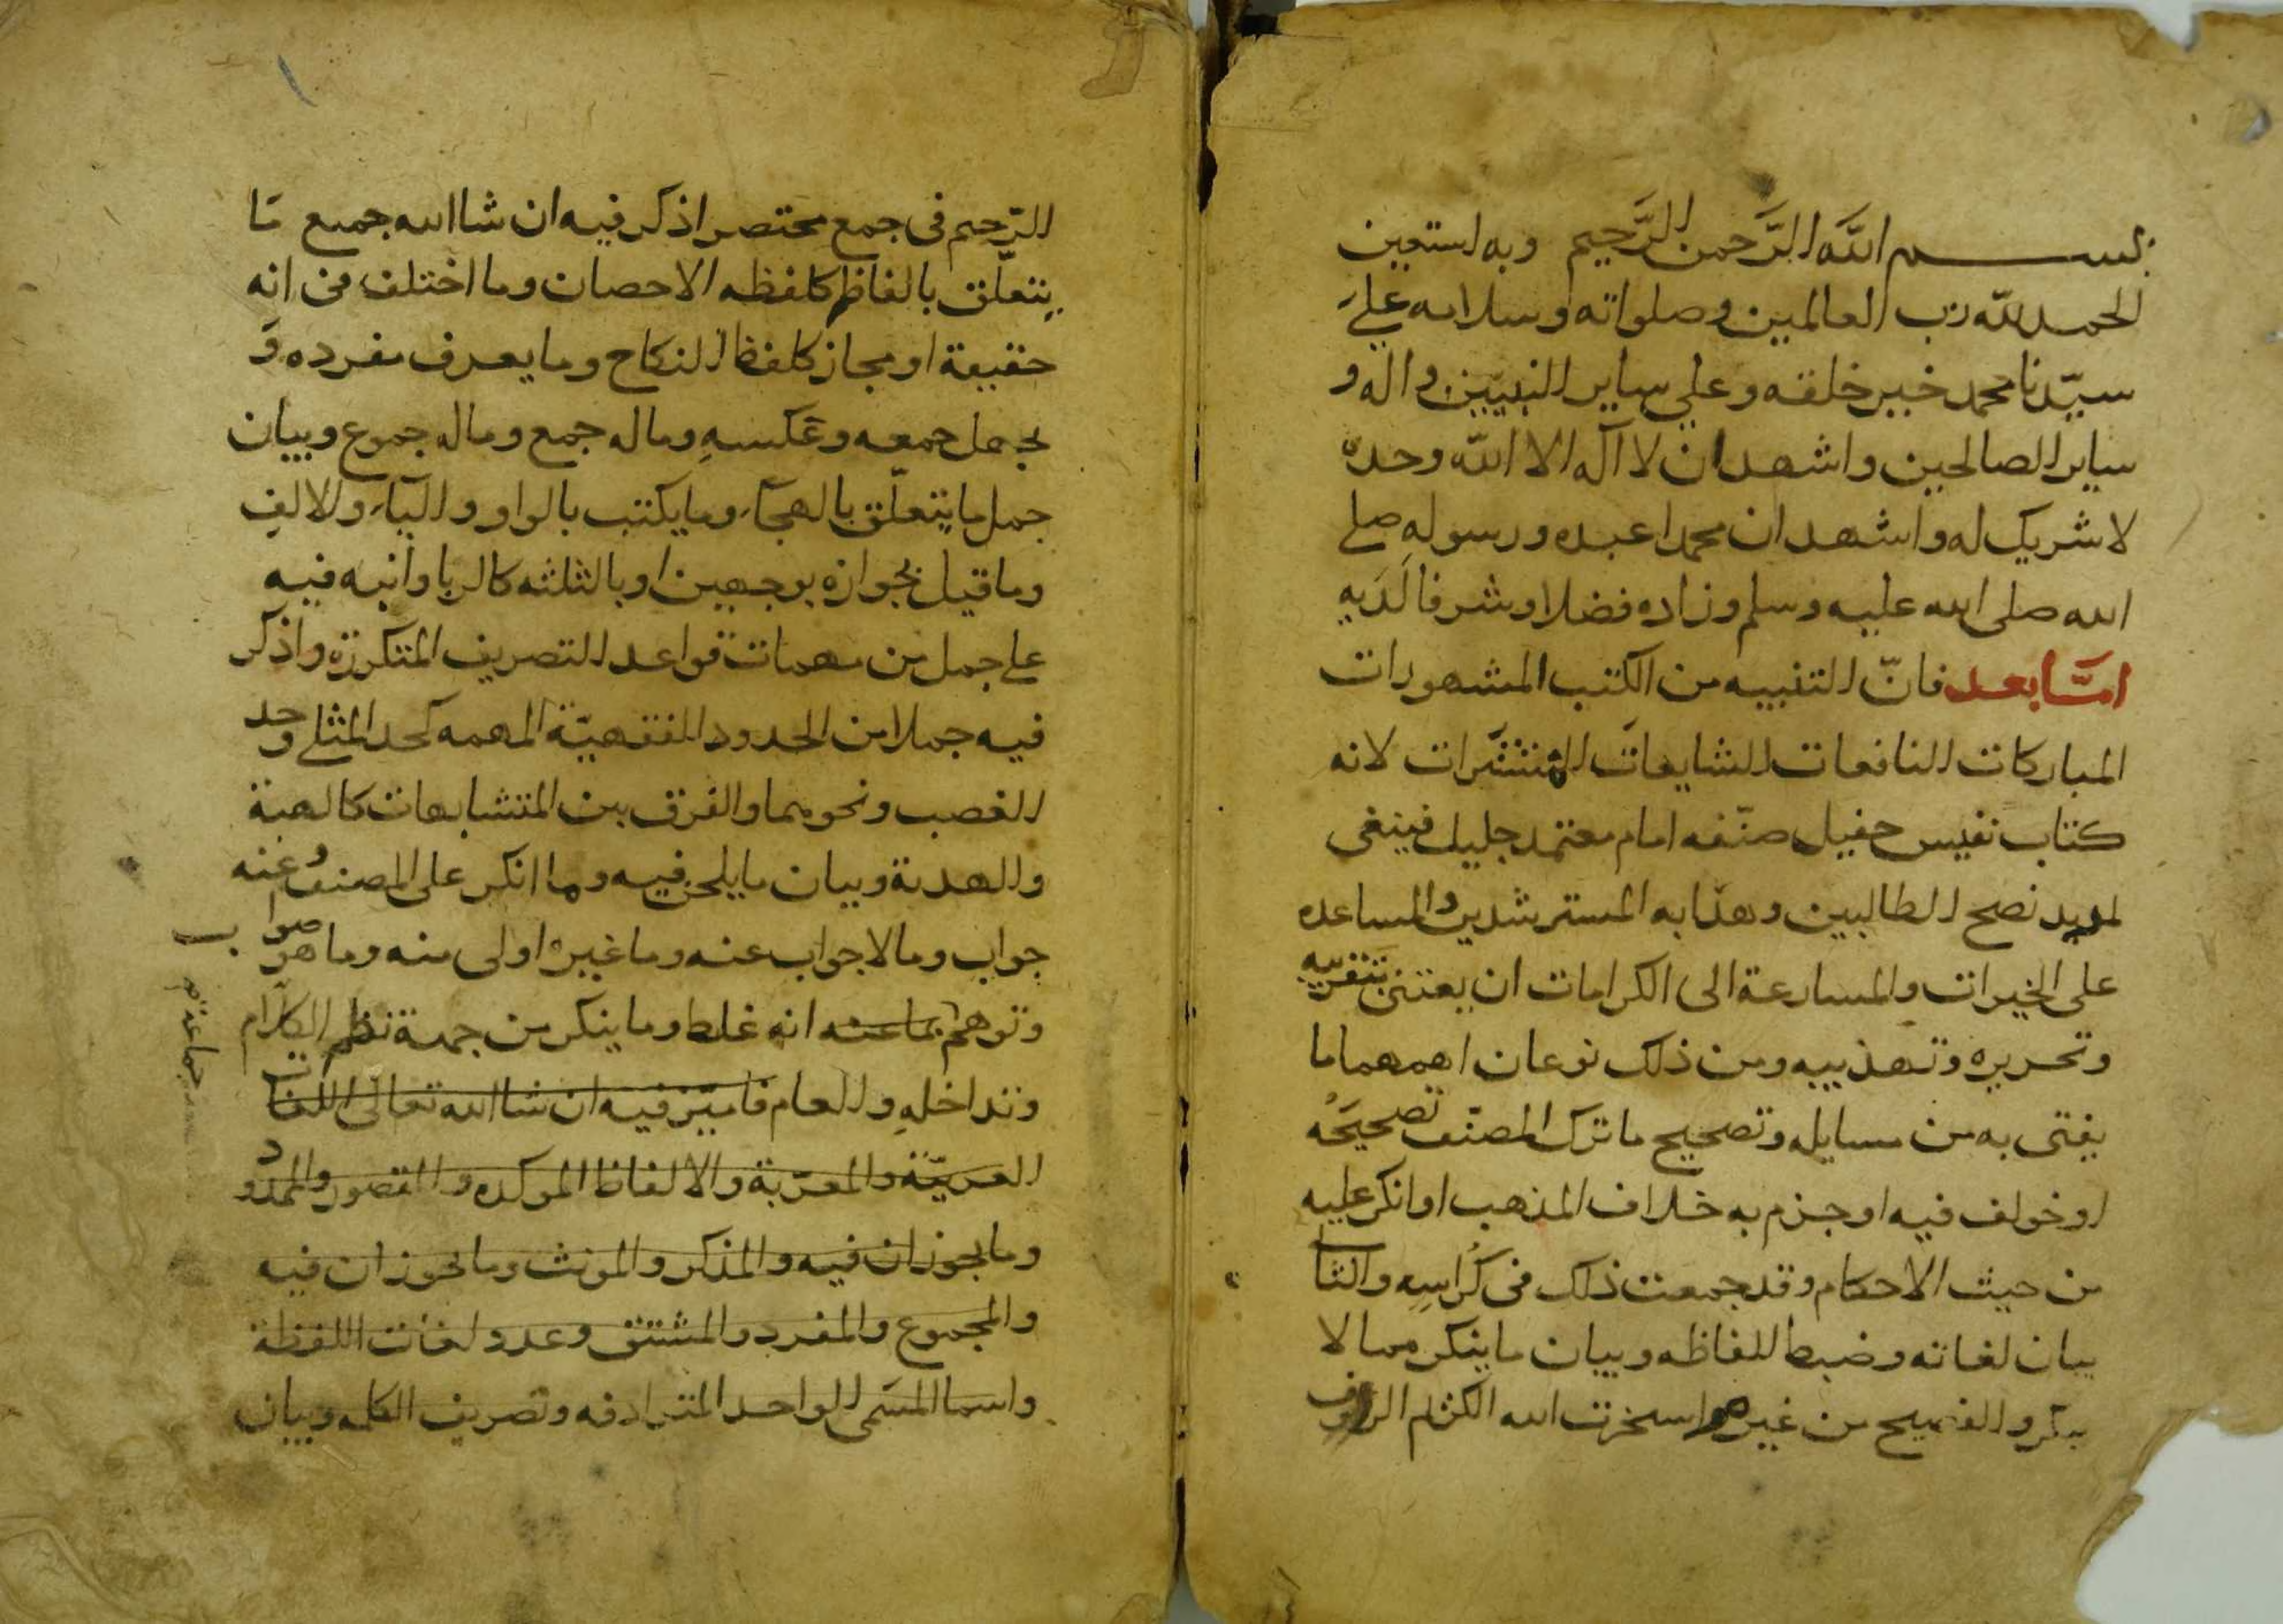 بسم الله الرَّحمن الرَّحيم وبه استعين
الحمد لله رب العالمين وصلواته وسلامه علي
سيّدنا محمد خير خلقه وعلي ساير النبيّين وآله و
ساير الصالحين واشهد ان لا اله الا الله وحده
لا شريك له واشهد ان محمدا عبده ورسوله صلي
الله صلى الله عليه وسلم وزاده فضلا وشرفا لَدَيه
امّا بعد فانّ التنبيه من الكتب المشهورات
المباركات النافعات الشايعات المنتشرات لانه
كتاب نفيس حفيل صنّفه امام معتمد جليل فينبغى
لمريد نصح الطالبين وهدايه المسترشدين والمساعده
على الخيرات والمسارعة الى الكرامات ان يعتنى بتقريبه
وتحريره وتهذيبه ومن ذلك نوعان اهمهما ما
يفتى به من مسايله وتصحيح ما ترك المصنّف تصحيحَه
او خولف فيه او جزم به خلاف المذهب او انكر عليه
من حيث الاحكام وقد جمعت ذلك فى كُراسِه والثا
بيان لغاته وضبط الفاظه وبيان ما ينكر مما لا
ينكر والفصيح من غيره استخرت الله الكريم الروف
الرّحيم فى جمع مختصر اذكر فيه ان شا الله جميع ما
يتعلّق بالفاظه كلفظه الاحصان وما اختلف فى انه
حقيقة او مجاز كلفظ النكاح وما يعرف مفرده و
يجهل جمعه وعكسهِ وماله جمع وماله جموع وبيان
جمل ما يتعلّق بالهجآء وما يكتب بالواو والياء والالف
وما قيل بجوازه بوجهين او بالثلثه كالربا وانبه فيه
على جمل من مهمات قواعد التصريف المتكررة واذكر
فيه جملا من الحدود الفقهيّة المهمه كحد المثلي وحد
الغصب ونحوهما والفرق بين المتشابهات كالهبة
والهدية وبيان ما يلحن فيه وما انكر على المصنف وعنه
جواب وما لا جواب عنه وما غيره اولى منه وما هو صواب
وتوهم جماعة انه غلط وما ينكر من جهة نظم الكلام
وتداخلهِ والعام فاميّز فيه ان شا الله تعالى اللغات
العربيّة والمعرّبة والالفاظ المولده والمقصور والممدود
وما يجوزان فيه والمذكر والمونث وما يجوزان فيه
والمجموع والمفرد والمشتق وعدد لغات اللفظة
واسما المسَمى الواحد المترادفه وتصريف الكلمه وبيان
جماعة